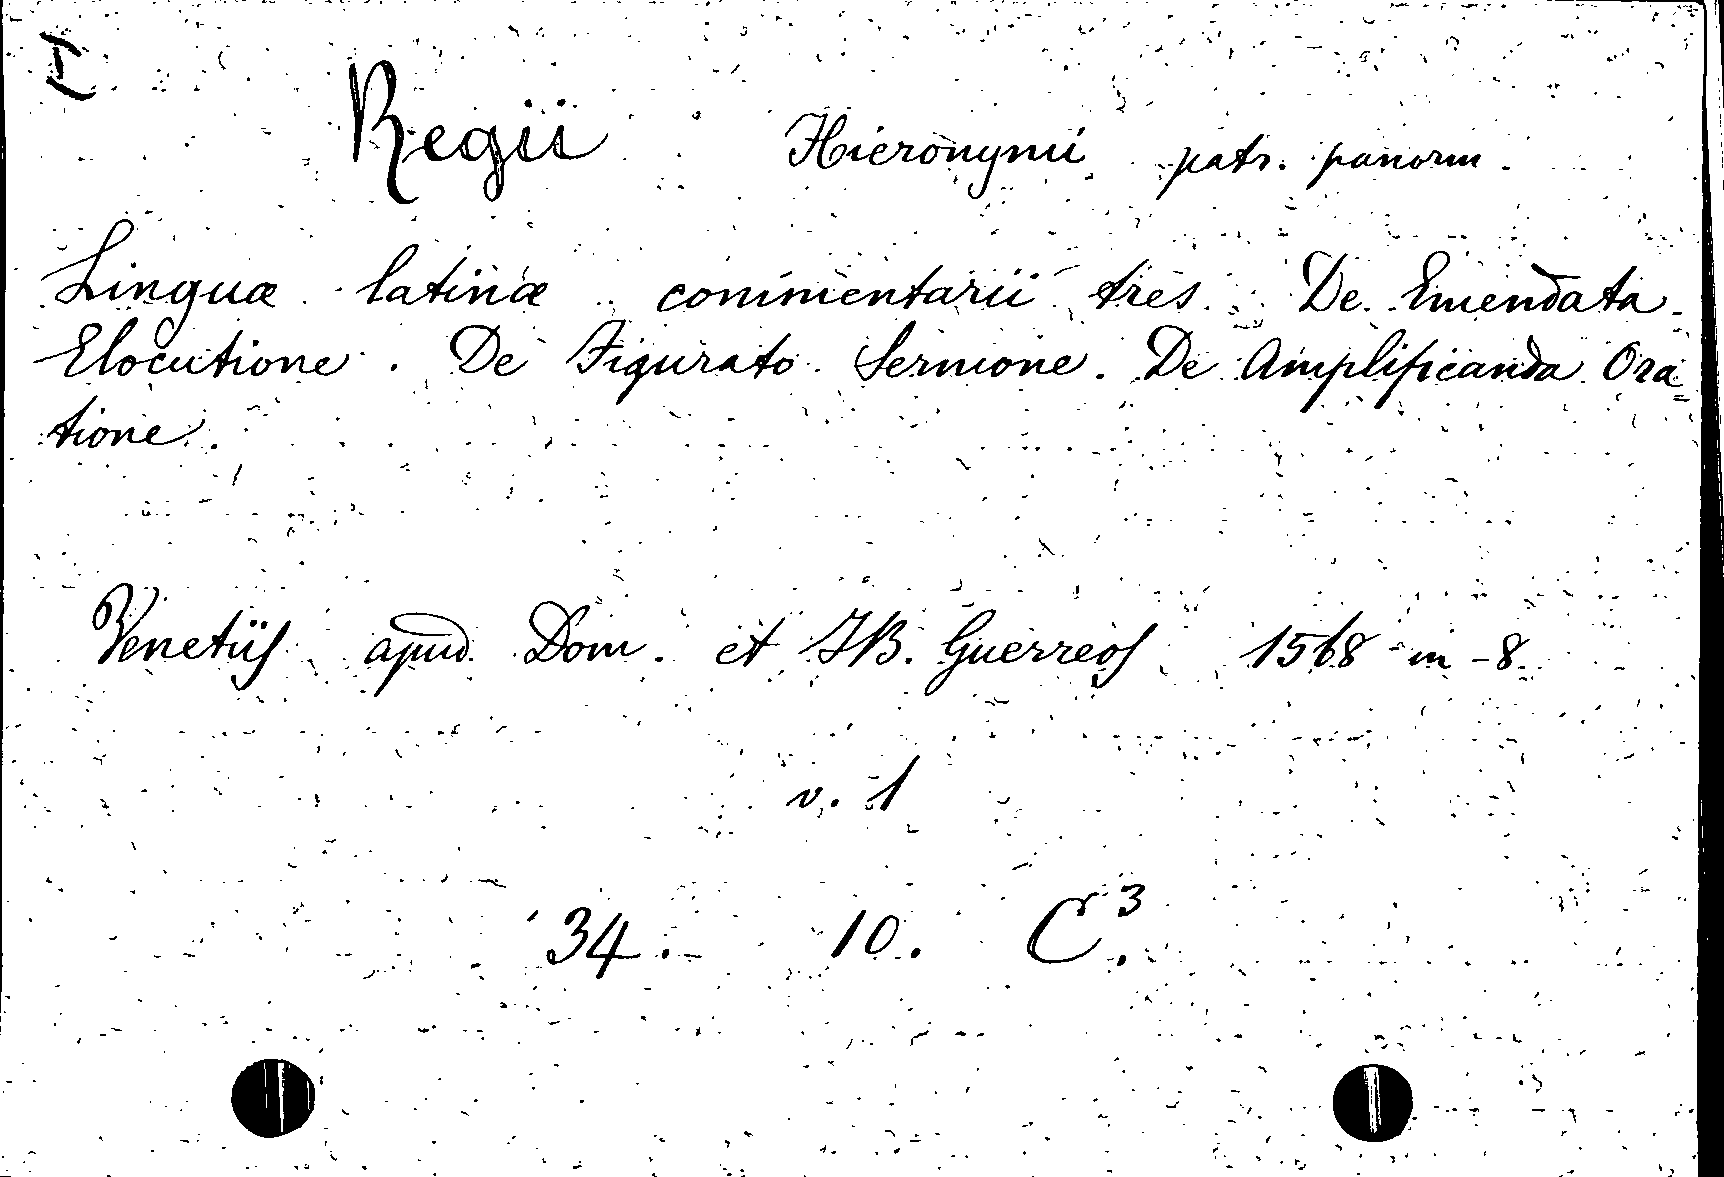 I
Regii Hieronymi patr. panorm.
Linguæ latinæ commentarii tres. De Emendata
Elocutione. De Figurato Sermone. De Amplificanda Ora=
tione.
Venetiis apud Dom. et JB. Guerreos 1568 in-8.
v. 1
34. 10. C³.